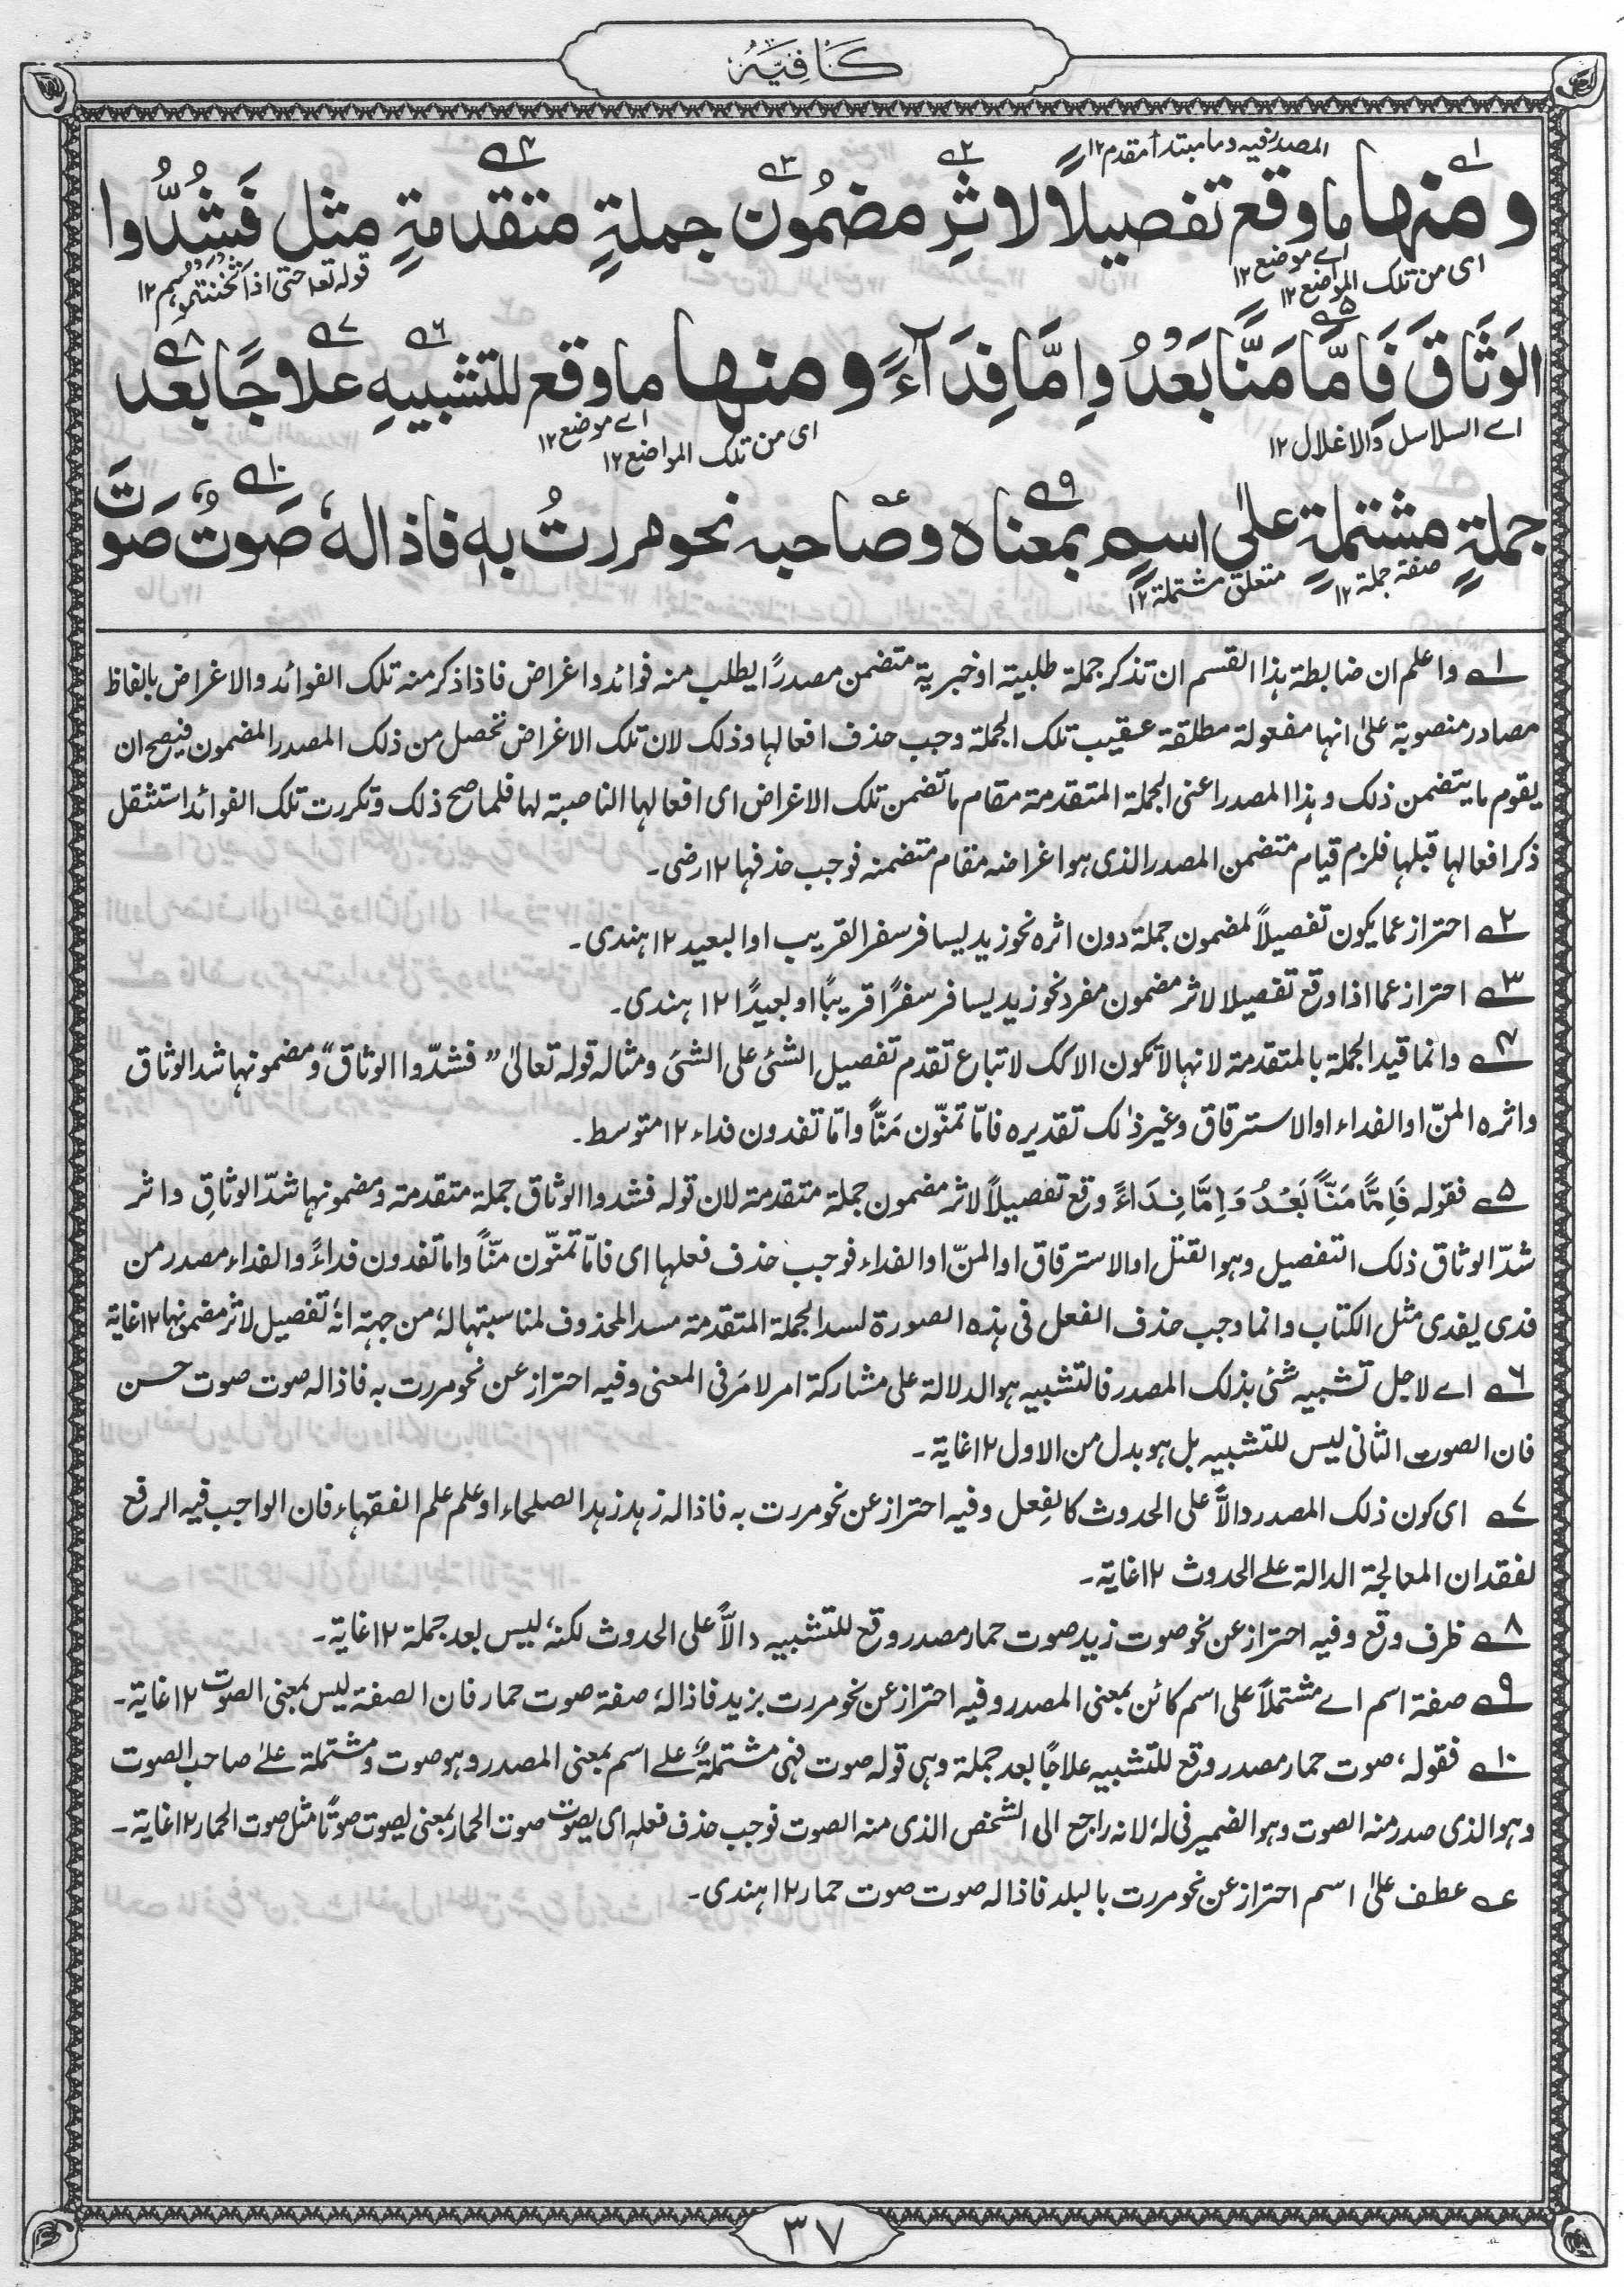 كَافِيَه
المصدر فيه وما مبتدأ مقدم ١٢
ومنها ما وقع تفصيلًا لاثرِ مضمُون جملةٍ متقدمةٍ مثل فَشُدُّوا
اى من تلك المواضع ١٢ اے موضع ١٢ قوله تعا حتى اذا اثخنتموهم ١٢
الوَثَاقَ فَاِمَّا مَنًّا بَعْدُ وَاِمَّا فِدَآءً ومنها ما وقع للتشبيهِ علاجًا بعد
اے السلاسل والاغلال ١٢ اى من تلك المواضع ١٢ اے موضع ١٢
جملةٍ مشتملةٍ علىٰ اسمٍ بمعناه وصاحبه نحو مررتُ به فاذا له صَوتٌ صَوتَ
صفة جملة ١٢ متعلق مشتملة ١٢
١ واعلم ان ضابطة هذا القسم ان تذكر جملة طلبية او خبرية متضمن مصدرًا يطلب منه فوائد واغراض فاذا ذكر منه تلك الفوائد والاغراض بالفاظ
مصادر منصوبة علىٰ انها مفعولة مطلقة عقيب تلك الجملة وجب حذف افعالها وذلك لان تلك الاغراض تحصل من ذلك المصدر المضمون فيصح ان
يقوم ما يتضمن ذلك وهذا المصدر اعنى الجملة المتقدمة مقام ما تضمن تلك الاغراض اى افعالها الناصبة لها فلما صح ذلك وتكررت تلك الفوائد استثقل
ذكر افعالها قبلها فلزم قيام متضمن المصدر الذى هو اغراضه مقام متضمنه فوجب حذفها ١٢ رضى۔
٢ احتراز عما يكون تفصيلاً لمضمون جملة دون اثره نحو زيد يسافر سفر القريب او البعيد ١٢ هندى۔
٣ احتراز عما اذا وقع تفصيلا لاثر مضمون مفرد نحو زيد يسافر سفرًا قريبًا او بعيدًا ١٢ هندى۔
٤ وانما قيد الجملة بالمتقدمة لانها لا تكون الا كك لا تباع تقدم تفصيل الشئ على الشئ ومثاله قوله تعالىٰ ”فشدّوا الوثاق“ ومضمونها شد الوثاق
واثره المنّ او الفداء او الاسترقاق وغير ذٰلك تقديره فامّا تمنّون مَنًّا وامّا تفدون فداء ١٢ متوسط۔
٥ فقوله فَاِمَّا مَنًّا بَعْدُ وَاِمَّا فِدَاءً وقع تفصيلاً لاثر مضمون جملة متقدمة لان قوله فشدوا الوثاق جملة متقدمة ومضمونها شدّ الوثاقِ واثر
شدّ الوثاق ذلك التفصيل وهو القتل او الاسترقاق او المنّ او الفداء فوجب حذف فعلها اى فامّا تمنّون منّاً واما تفدون فداءً والفداء مصدر من
فدى يفدى مثل الكتاب وانما وجب حذف الفعل فى هذه الصورة لسد الجملة المتقدمة مسد المحذوف لمناسبتها له من جهة انه تفصيل لاثر مضمونها ١٢ غاية
٦ اے لاجل تشبيه شئ بذلك المصدر فالتشبيه هو الدلالة على مشاركة امر لامر فى المعنى وفيه احتراز عن نحو مررت به فاذا له صوت صوت حسن
فان الصوت الثانى ليس للتشبيه بل هو بدل من الاول ١٢ غاية۔
٧ اى كون ذلك المصدر دالاًّ على الحدوث كالفِعل وفيه احتراز عن نحو مررت به فاذا له زهد زهد الصلحاء او علم علم الفقهاء فان الواجب فيه الرفع
لفقدان المعالجة الدالة علے الحدوث ١٢ غاية۔
٨ ظرف وقع وفيه احتراز عن نحو صوت زيد صوت حمار مصدر وقع للتشبيه دالاًّ على الحدوث لكنه ليس بعد جملة ١٢ غاية۔
٩ صفة اسم اے مشتملاً على اسم كائن بمعنى المصدر وفيه احتراز عن نحو مررت بزيد فاذا له صفة صوت حمار فان الصفة ليس بمعنى الصوت ١٢ غاية۔
١٠ فقوله صوت حمار مصدر وقع للتشبيه علاجًا بعد جملة وهى قوله صوت فهى مشتملةٌ علے اسم بمعنى المصدر وهو صوت ومشتملة علےٰ صاحب الصوت
وهو الذى صدر منه الصوت وهو الضمير فى له لانه راجع الى الشخص الذى منه الصوت فوجب حذف فعله اى يصوت صوت الحمار بمعنى يصوت صوتًا مثل صوت الحمار ١٢ غاية۔
ع عطف علىٰ اسم احتراز عن نحو مررت بالبلد فاذا له صوت صوت حمار ١٢ هندى۔
٣٧